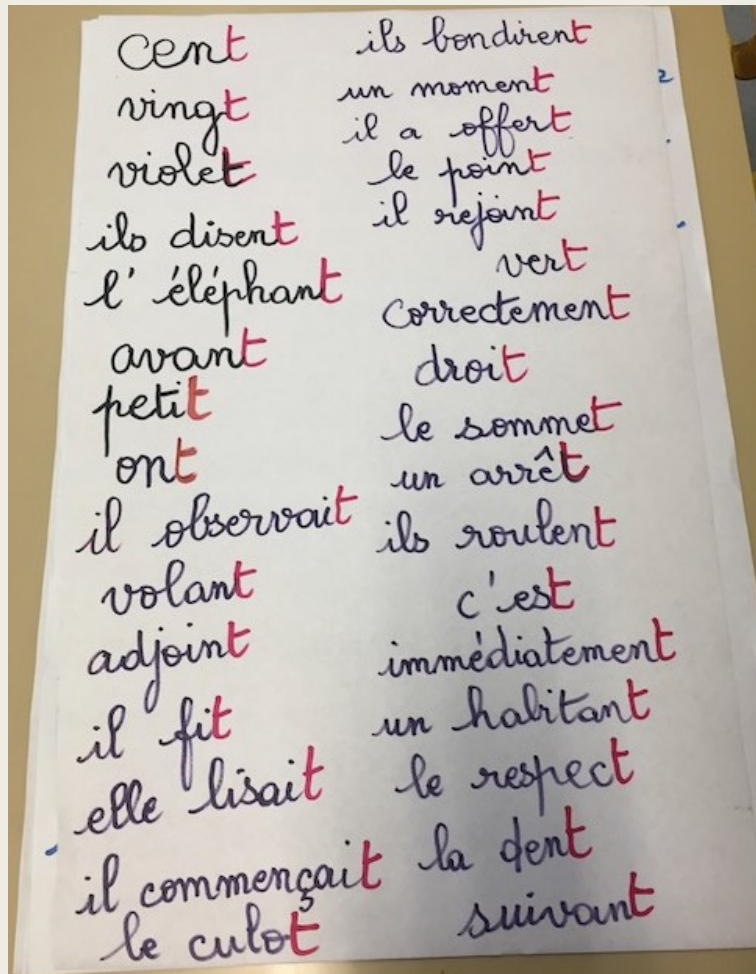 cent
vingt
violet
ils disent
l'éléphant
avant
petit
ont
il observait
volant
adjoint
il fit
elle lisait
il commençait
le culot
ils bondirent
un moment
il a offert
le point
il rejoint
vert
correctement
droit
le sommet
un arrêt
ils roulent
c'est
immédiatement
un habitant
le respect
la dent
suivant
2